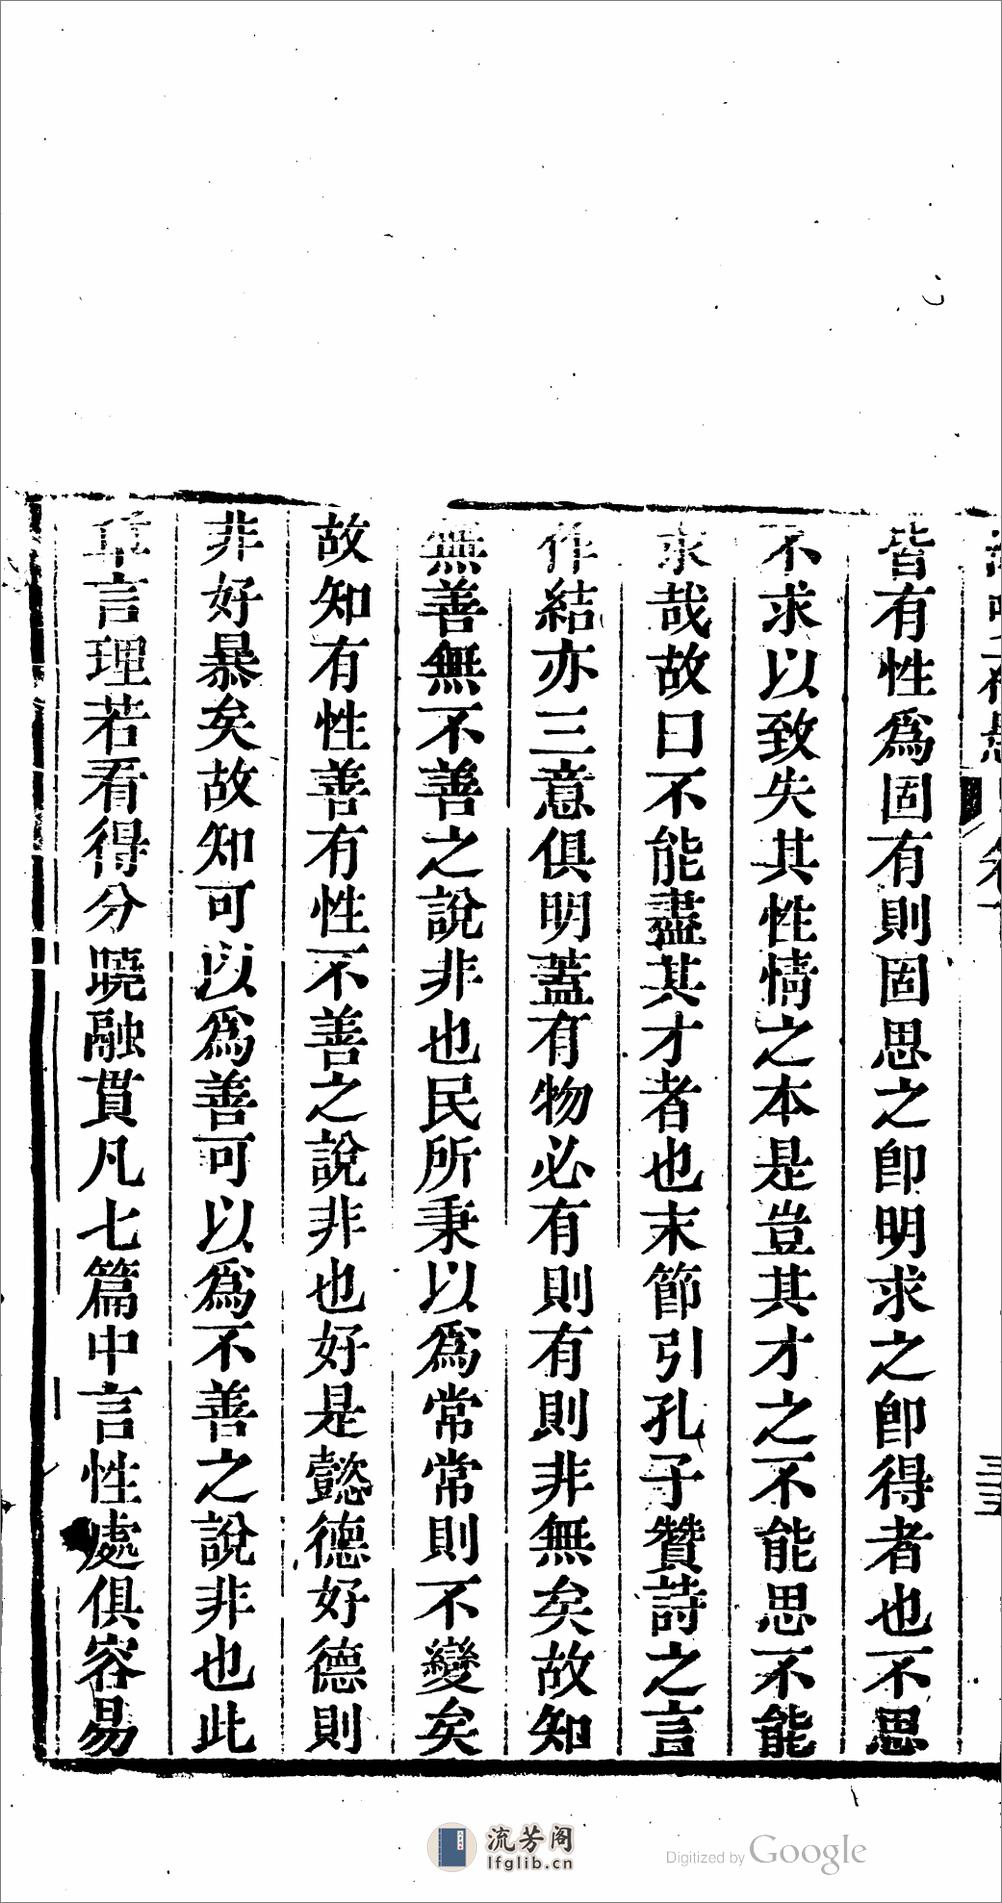 皆有性爲固有則固思之卽明求之卽得者也不思
不求以致失其性情之本是豈其才之不能思不能
求哉故曰不能盡其才者也末節引孔子贊詩之言
作結亦三意俱明蓋有物必有則有則非無矣故知
無善無不善之說非也民所秉以爲常常則不變矣
故知有性善有性不善之說非也好是懿德好德則
非好暴矣故知可以爲善可以爲不善之說非也此
章言理若看得分曉融貫凡七篇中言性處俱容易
流芳阁
lfglib.cn
Digitized by Google